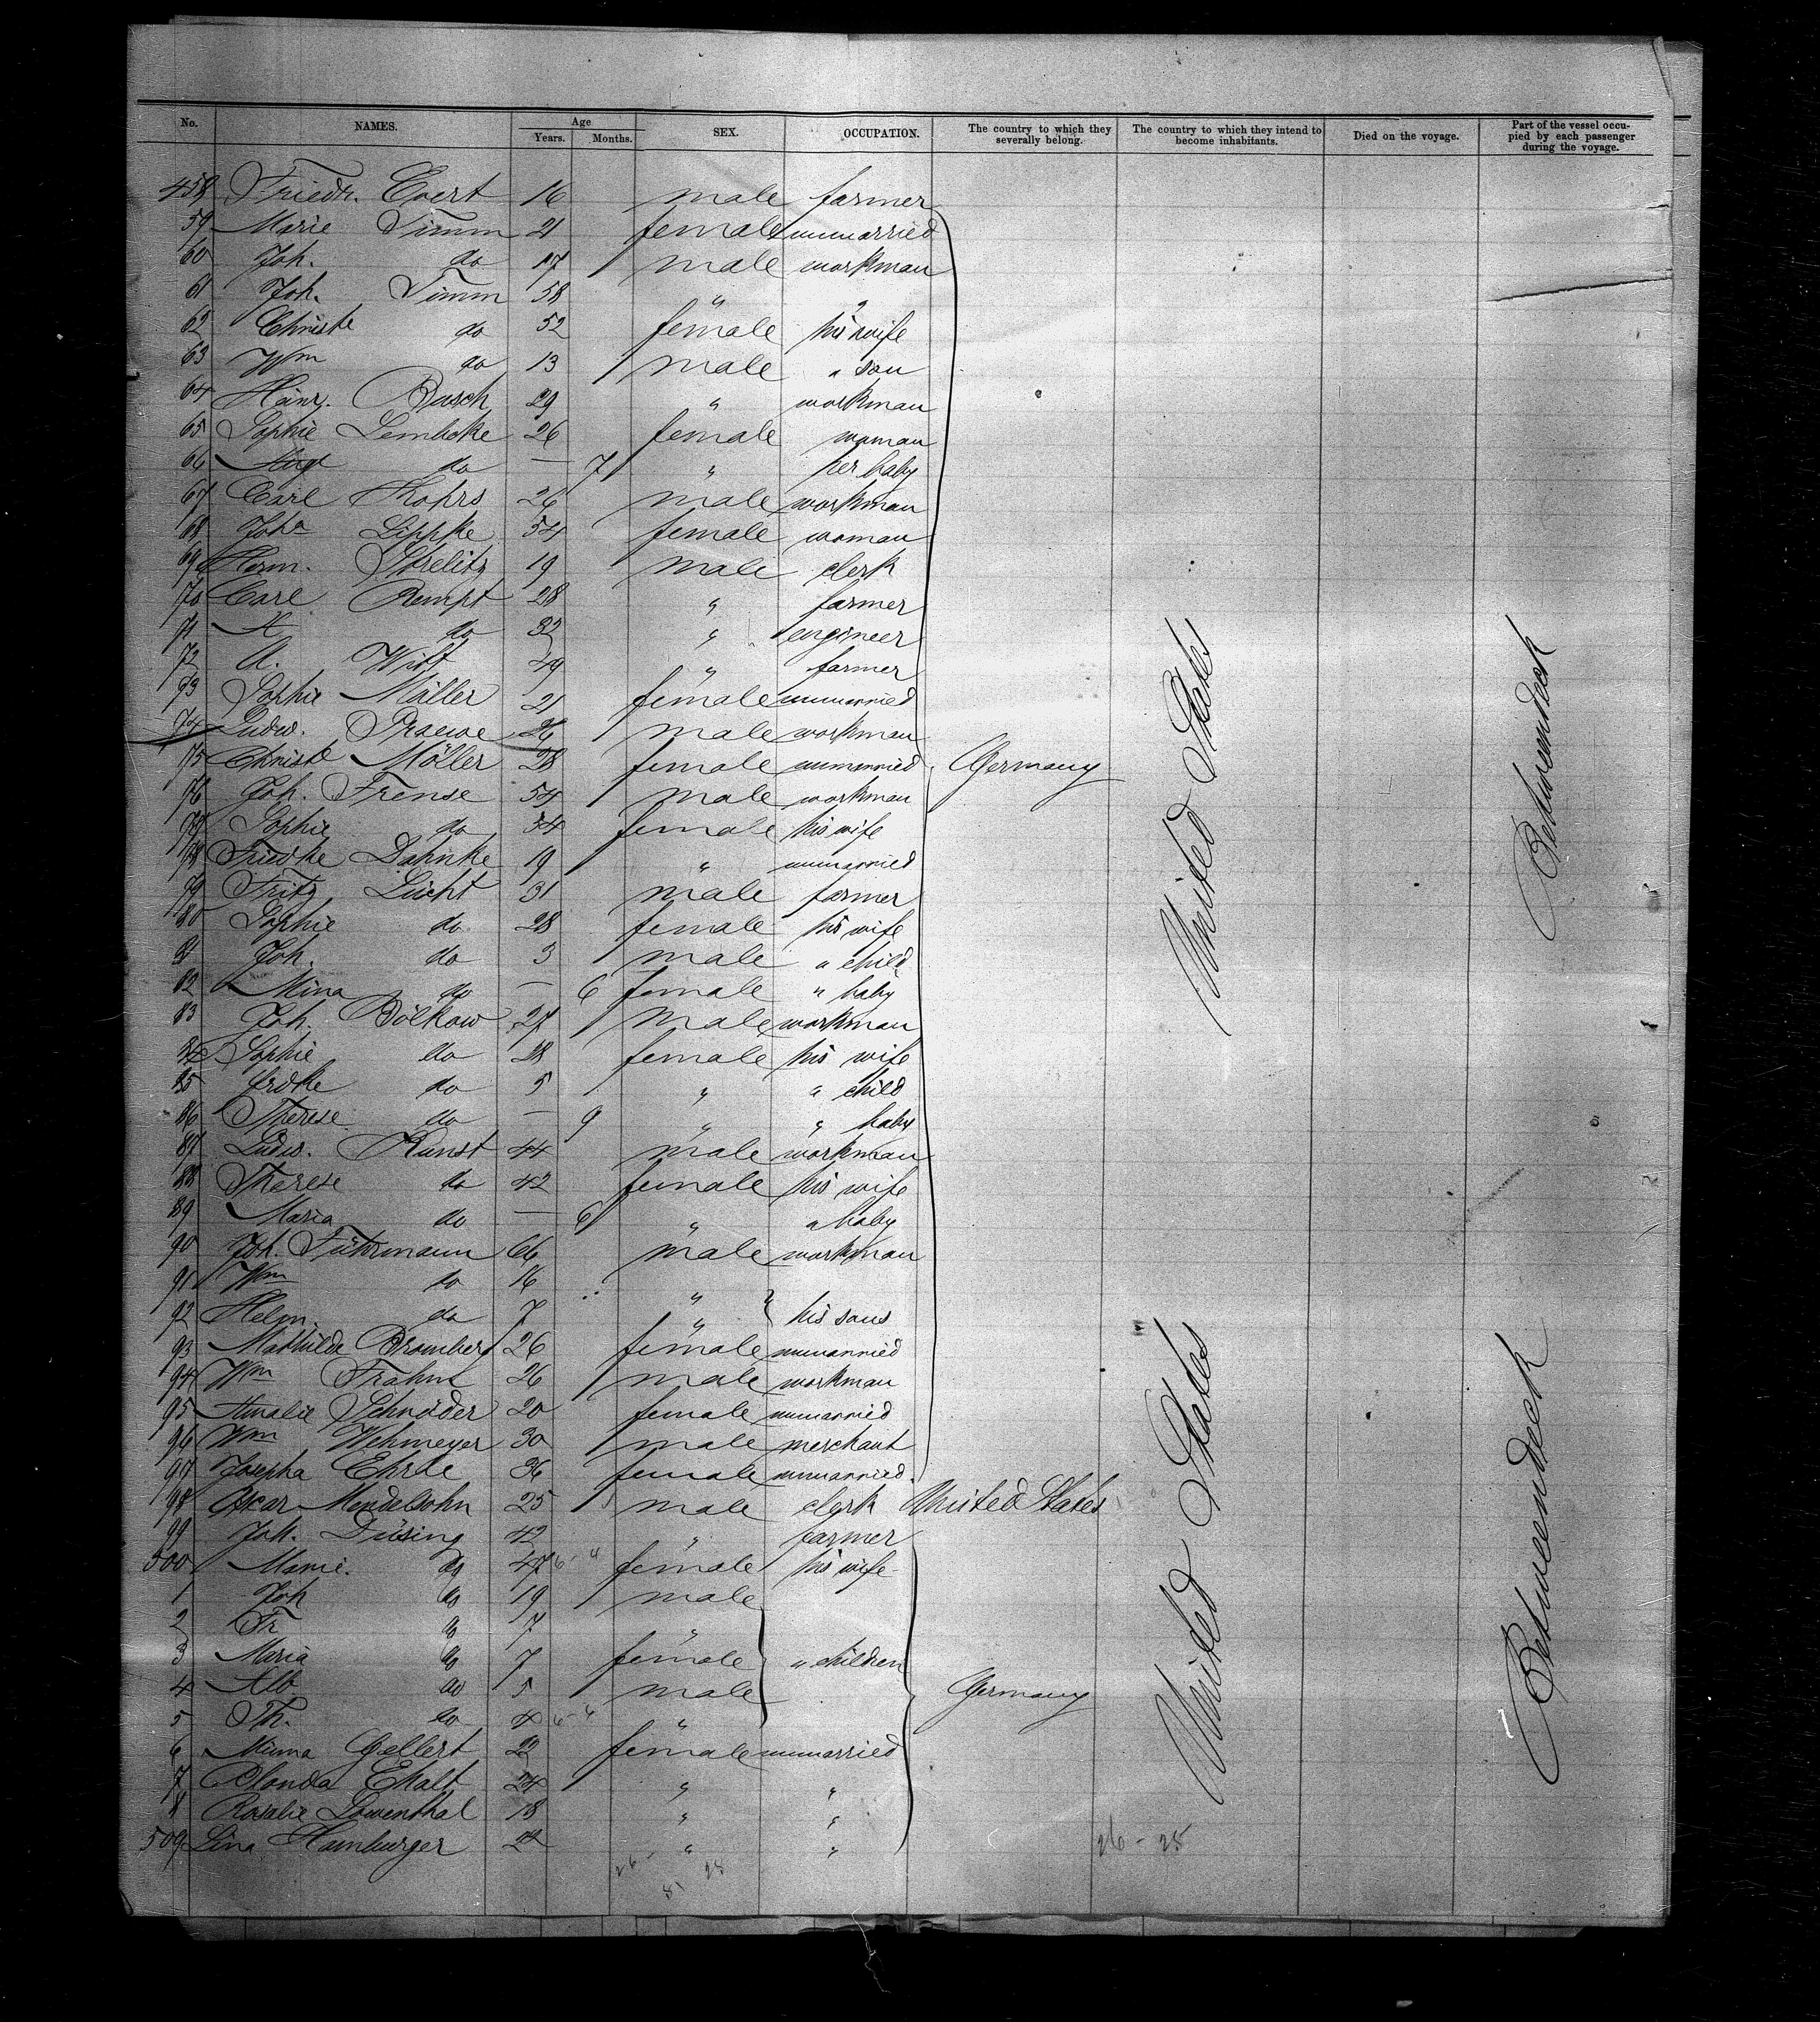 No. NAMES. Age Years. Months. SEX. OCCUPATION. The country to which they severally belong. The country to which they intend to become inhabitants. Died on the voyage. Part of the vessel occupied by each passenger during the voyage.
458 Friedr. Evert 16 male farmer
59 Marie Timm 21 female unmarried
60 Joh. do 17 male workman
61 Joh. Timm 58 " "
62 Christe do 52 female his wife
63 Wm do 13 male " son
64 Heinr. Basch 29 " workman
65 Sophie Lembcke 26 female woman
66 do — 7 " her baby
67 Carl 26 male workman
68 Joha Lippke 54 female woman
69 Herm. Strelitz 19 male clerk
70 Carl Rempt 28 " farmer
71 do 32 " engineer
72 A. Witt 49 " farmer
73 Sophie Möller 21 female unmarried
74 Ludw. Praewe 26 male workman
75 Christe Möller 28 female unmarried Germany United States Betweendeck
76 Joh. Frense 54 male workman
77 Sophie do 54 female his wife
78 Friedke Dahnke 19 " unmarried
79 Fritz Lücht 31 male farmer
80 Sophie do 28 female his wife
81 Joh. do 3 male " child
82 Mina do — 6 female " baby
83 Joh. Bölkow 27 male workman
84 Sophie do 28 female his wife
85 frdke do 5 " " child
86 Therese do — 9 " " baby
87 Ludw. Kunst 44 male workman
88 Therese do 42 female his wife
89 Maria do — 6 " " baby
90 Joh. Führmann 66 male workman
91 Wm do 16 " "
92 Helm. do 7 " his sons
93 Mathilde Bromberg 26 female unmarried
94 Wm Frahm 26 male workman
95 Amalie Schröder 20 female unmarried
96 Wm Wehmeyer 30 male merchant
97 Josepha Ehrle 36 female unmarried
98 Oscar Mendelsohn 25 male clerk United States
99 Joh. Düsing 42 " farmer
500 Marie do 47 female his wife
1 Joh do 19 male
2 Fr do 7 "
3 Maria do 7 female " children
4 Alb do 5 male Germany United States Betweendeck
5 Th. do 4 "
6 Minna Gellert 22 female unmarried
7 Ekalt 24 " "
8 Rosalie Löwenthal 18 " "
509 Lina Hamburger 22 " "
26 - 25